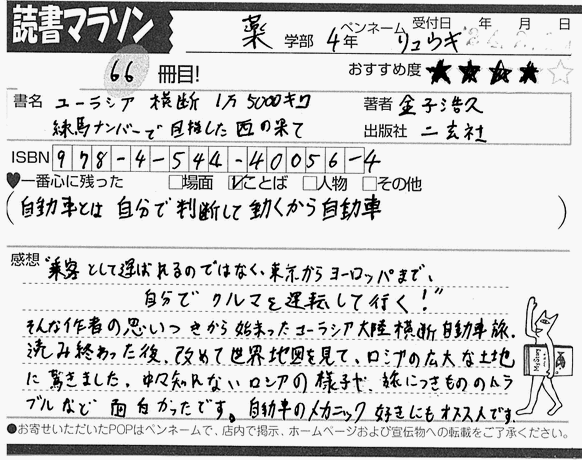 読書マラソン
薬 学部 4年 ペンネーム リュウギ 受付日 年 月 日
66 冊目! おすすめ度 ★★★★☆
書名 ユーラシア 横断 1万5000キロ
練馬ナンバーで目指した西の果て
著者 金子浩久
出版社 二玄社
ISBN 978-4-544-40056-4
♥一番心に残った □場面 ☑ことば □人物 □その他
(自動車とは 自分で判断して動くから自動車)
感想 "乗客として運ばれるのではなく、東京からヨーロッパまで、
自分でクルマを運転して行く!"
そんな作者の思いつきから始まったユーラシア大陸横断自動車旅。
読み終わった後、改めて世界地図を見て、ロシアの広大な土地
に驚きました。中々知れないロシアの様子や、旅につきもののトラ
ブルなど 面白かったです。自動車のメカニック好きにもオススメです。
●お寄せいただいたPOPはペンネームで、店内で掲示、ホームページおよび宣伝物への転載をご了承ください。